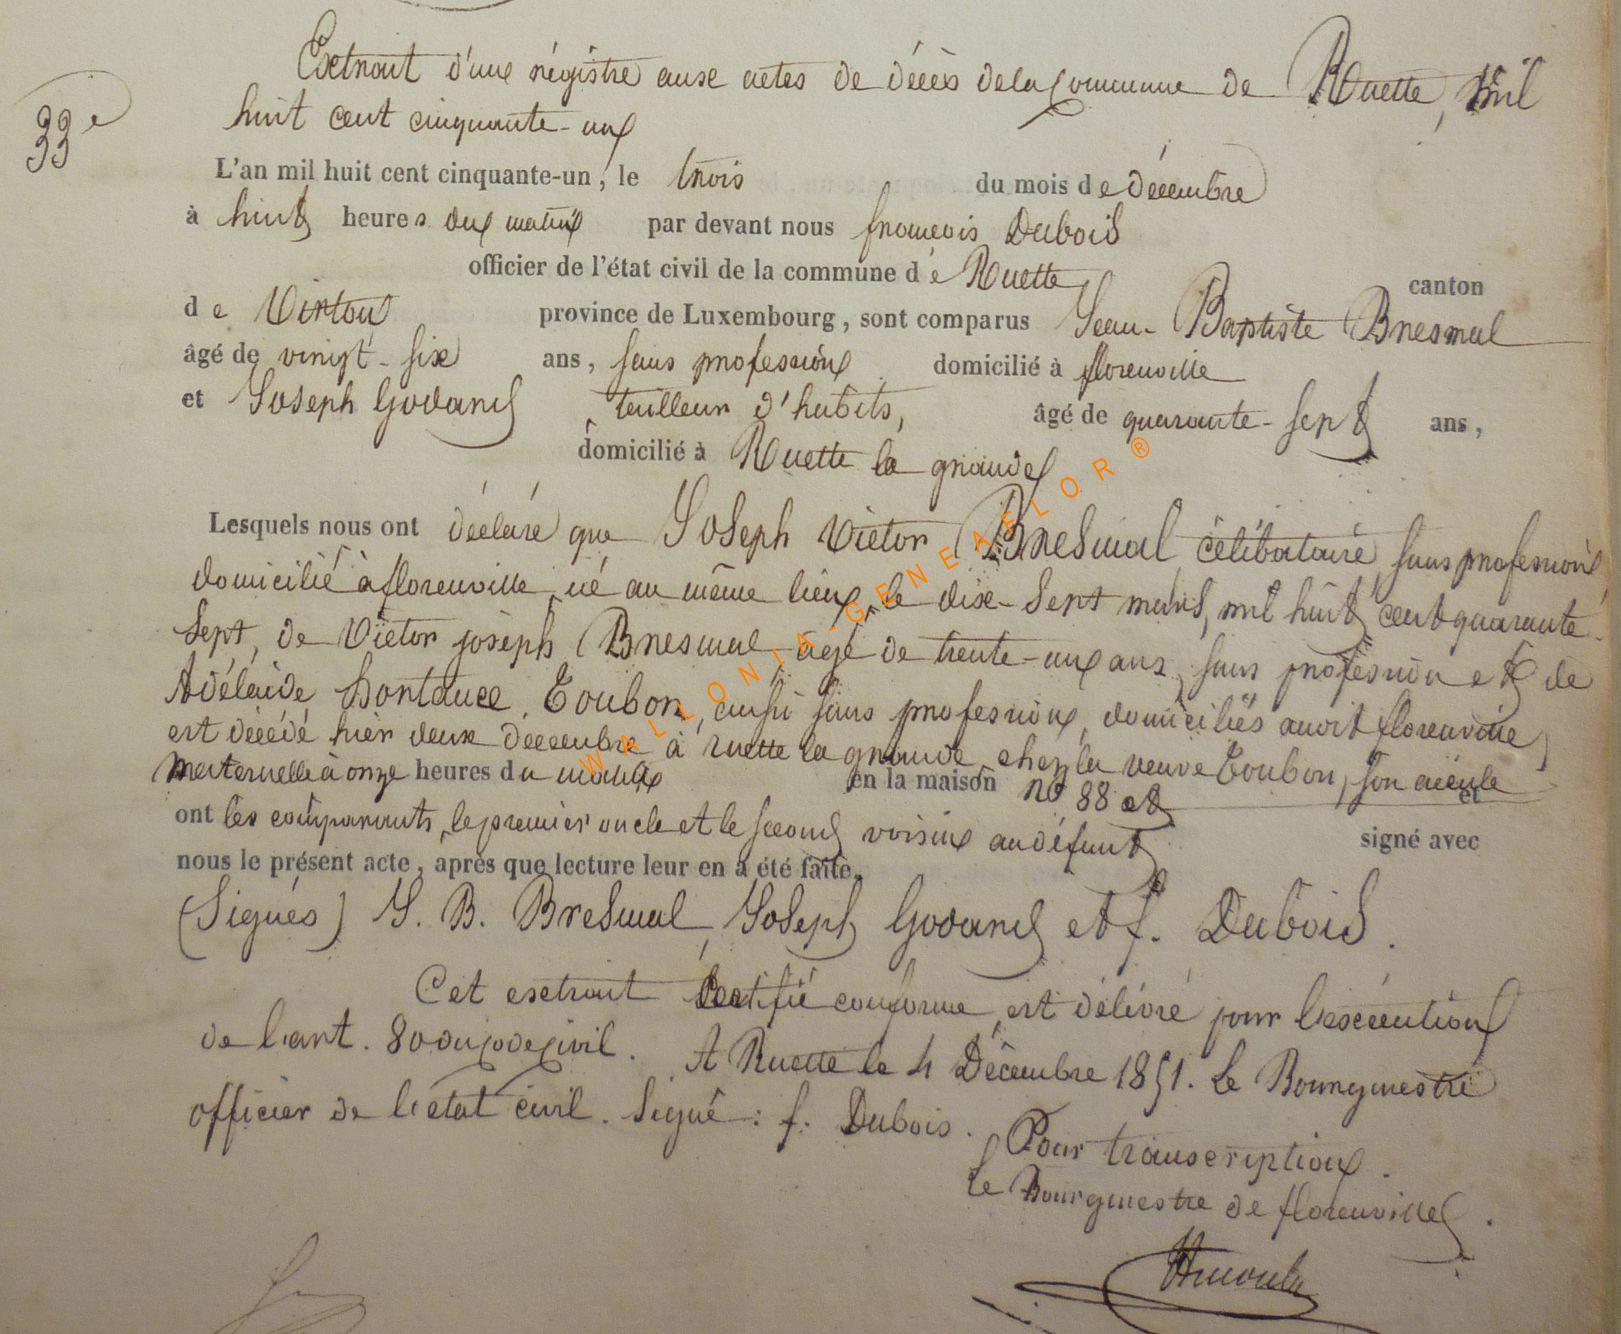 33e
Extrait d'une régistre aux actes de décès de la Commune de Ruette, mil
huit cent cinquante-un
L'an mil huit cent cinquante-un, le trois du mois de décembre
à huit heures du matin par devant nous françois Dubois
officier de l'état civil de la commune de Ruette canton
de Virton province de Luxembourg, sont comparus Jean-Baptiste Bresmal
âgé de vingt-six ans, sans profession domicilié à florenville
et Joseph Godard tailleur d'habits, âgé de quarante-sept ans,
domicilié à Ruette la grande
Lesquels nous ont déclaré que Joseph Victor Bresmal, célibataire, sans profession,
domicilié à florenville, né au même lieu, le dix-sept mars, mil huit cent quarante-
sept, de Victor joseph Bresmal âgé de trente-un ans, sans profession et de
Adélaïde hortance Toubon, aussi sans profession, domiciliés audit florenville,
est décédé hier deux décembre à ruette la grande, chez la veuve Toubon, son aïeule
maternelle à onze heures du matin en la maison no 88 et et
ont les comparants, le premier oncle et le second voisin au défunt signé avec
nous le présent acte, après que lecture leur en a été faite.
(Signés) J. B. Bresmal, Joseph Godard et f. Dubois.
Cet extrait certifié conforme, est délivré pour l'exécution
de l'art. 80 du Code Civil. A Ruette le 4 Décembre 1851. Le Bourgmestre
officier de l'état civil. Signé: f. Dubois.
Pour transcription.
Le Bourgmestre de florenville.
WALLONIA-GENEAFLOR®